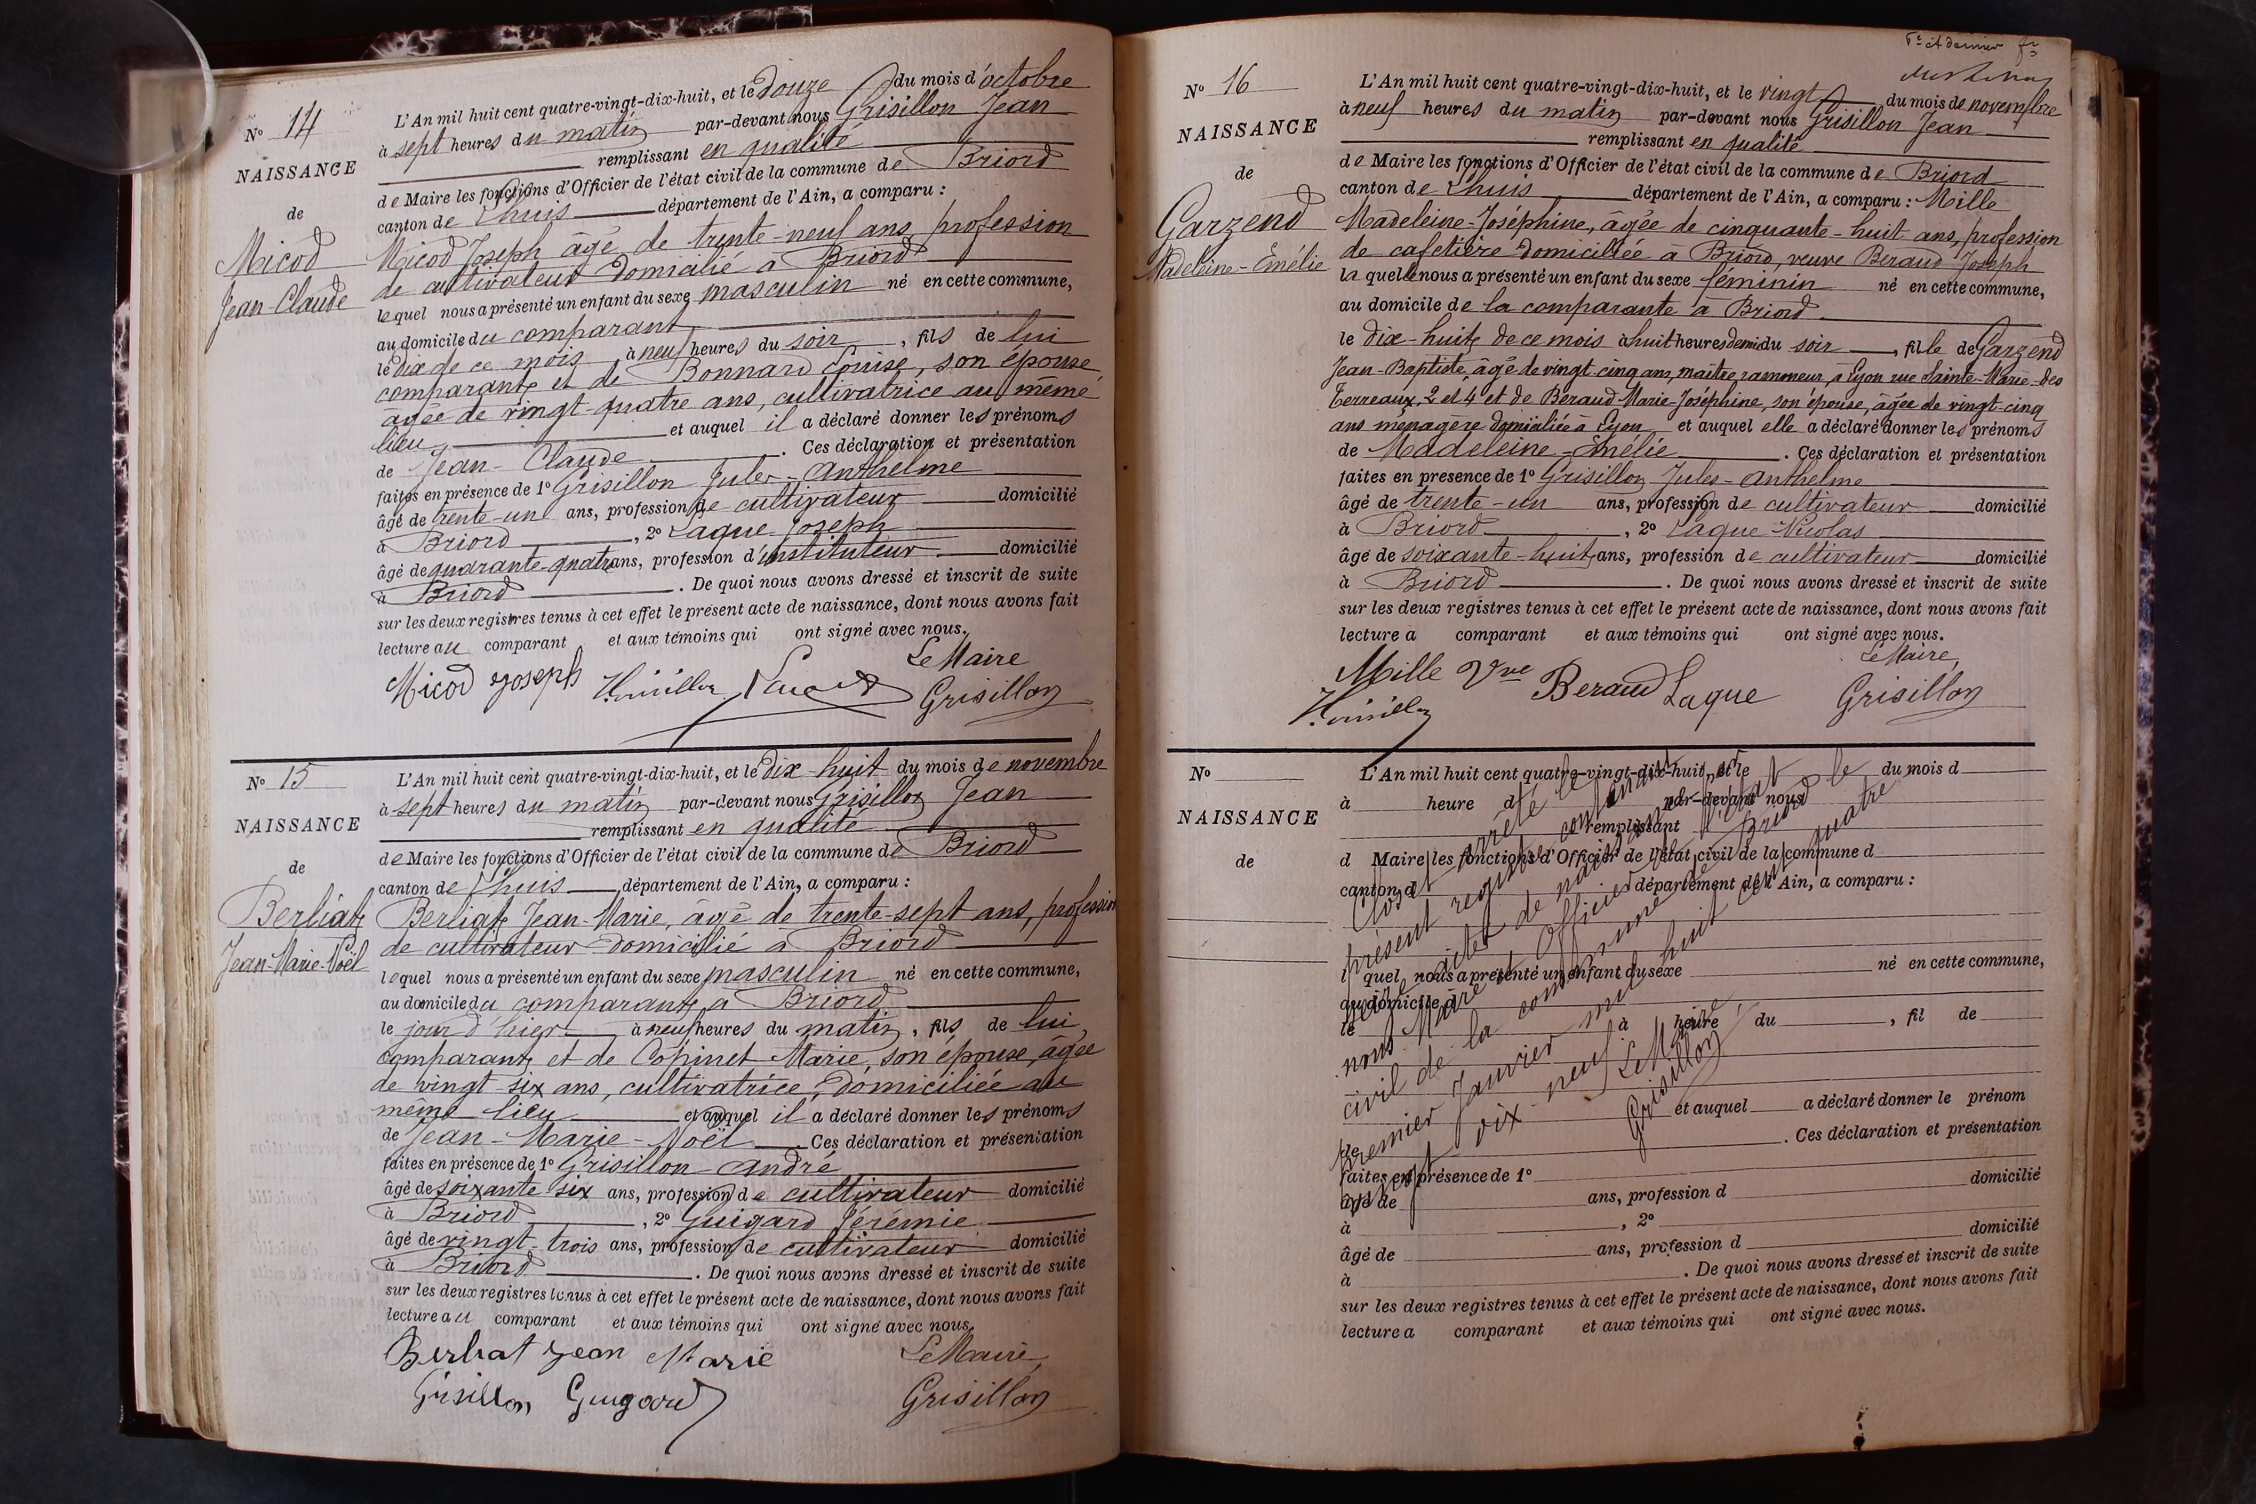 N° 14
NAISSANCE
de
Micod
Jean-Claude
L'An mil huit cent quatre-vingt-dix-huit, et le douze du mois d'octobre
à sept heures du matin par-devant nous Grisillon Jean
remplissant en qualité
de Maire les fonctions d'Officier de l'état civil de la commune de Briord
canton de Lhuis département de l'Ain, a comparu :
Micod Joseph âgé de trente-neuf ans, profession
de cultivateur domicilié à Briord
lequel nous a présenté un enfant du sexe masculin né en cette commune,
au domicile du comparant,
le dix de ce mois à neuf heures du soir, fils de lui
comparant et de Bonnard Louise, son épouse
âgée de vingt-quatre ans, cultivatrice au même
lieu et auquel il a déclaré donner les prénoms
de Jean-Claude. Ces déclaration et présentation
faites en présence de 1° Grisillon Jules-Anthelme
âgé de trente-un ans, profession de cultivateur domicilié
à Briord, 2° Laque Joseph
âgé de quarante-quatre ans, profession d'instituteur domicilié
à Briord. De quoi nous avons dressé et inscrit de suite
sur les deux registres tenus à cet effet le présent acte de naissance, dont nous avons fait
lecture au comparant et aux témoins qui ont signé avec nous.
Le Maire
Micod Joseph
Grisillon
N° 15
NAISSANCE
de
Berliat
Jean-Marie-Noël
L'An mil huit cent quatre-vingt-dix-huit, et le dix-huit du mois de novembre
à sept heures du matin par-devant nous Grisillon Jean
remplissant en qualité
de Maire les fonctions d'Officier de l'état civil de la commune de Briord
canton de Lhuis, département de l'Ain, a comparu :
Berliat Jean-Marie, âgé de trente-sept ans, profession
de cultivateur domicilié à Briord
lequel nous a présenté un enfant du sexe masculin né en cette commune,
au domicile du comparant, à Briord
le jour d'hier à neuf heures du matin, fils de lui,
comparant et de Copinet Marie, son épouse, âgée
de vingt-six ans, cultivatrice, domiciliée au
même lieu et auquel il a déclaré donner les prénoms
de Jean-Marie-Noël. Ces déclaration et présentation
faites en présence de 1° Grisillon André
âgé de soixante-six ans, profession de cultivateur domicilié
à Briord, 2° Guigard Jérémie
âgé de vingt-trois ans, profession de cultivateur domicilié
à Briord. De quoi nous avons dressé et inscrit de suite
sur les deux registres tenus à cet effet le présent acte de naissance, dont nous avons fait
lecture au comparant et aux témoins qui ont signé avec nous.
Berliat Jean Marie Le Maire,
Grisillon Guigard Grisillon
N° 16
NAISSANCE
de
Garzend
Madeleine-Emélie
L'An mil huit cent quatre-vingt-dix-huit, et le vingt du mois de novembre
à neuf heures du matin par-devant nous Grisillon Jean
remplissant en qualité
de Maire les fonctions d'Officier de l'état civil de la commune de Briord
canton de Lhuis département de l'Ain, a comparu : Mille
Madeleine-Joséphine, âgée de cinquante-huit ans, profession
de cafetière domiciliée à Briord, veuve Beraud Joseph
laquelle nous a présenté un enfant du sexe féminin né en cette commune,
au domicile de la comparante à Briord
le dix-huit de ce mois à huit heures demi du soir, fille de Garzend
Jean-Baptiste, âgé de vingt-cinq ans, maître ramoneur, à Lyon rue Sainte-Marie-des
Terreaux, 2 et 4 et de Béraud Marie-Joséphine, son épouse, âgée de vingt-cinq
ans ménagère domiciliée à Lyon et auquel elle a déclaré donner les prénoms
de Madeleine-Emélie. Ces déclaration et présentation
faites en présence de 1° Grisillon Jules-Anthelme
âgé de trente-un ans, profession de cultivateur domicilié
à Briord, 2° Laque Nicolas
âgé de soixante-huit ans, profession de cultivateur domicilié
à Briord. De quoi nous avons dressé et inscrit de suite
sur les deux registres tenus à cet effet le présent acte de naissance, dont nous avons fait
lecture a comparant et aux témoins qui ont signé avec nous.
Le Maire,
Mille Vve Beraud Laque Grisillon
N°
NAISSANCE
de
L'An mil huit cent quatre-vingt-dix-huit, et le du mois d
à heure d par-devant nous
remplissant
d Maire les fonctions d'Officier de l'état civil de la commune d
canton d département de l'Ain, a comparu :
l quel nous a présenté un enfant du sexe né en cette commune,
au domicile d
le à heure du, fil de
et auquel a déclaré donner le prénom
de. Ces déclaration et présentation
faites en présence de 1°
âgé de ans, profession d domicilié
à, 2°
âgé de ans, profession d domicilié
à. De quoi nous avons dressé et inscrit de suite
sur les deux registres tenus à cet effet le présent acte de naissance, dont nous avons fait
lecture a comparant et aux témoins qui ont signé avec nous.
Clos et arrêté le
présent registre contenant
seize actes de naissance par
nous Maire et Officier de l'état
civil de la commune de Briord le
premier Janvier mil huit cent quatre
vingt dix neuf
Le Maire
Grisillon